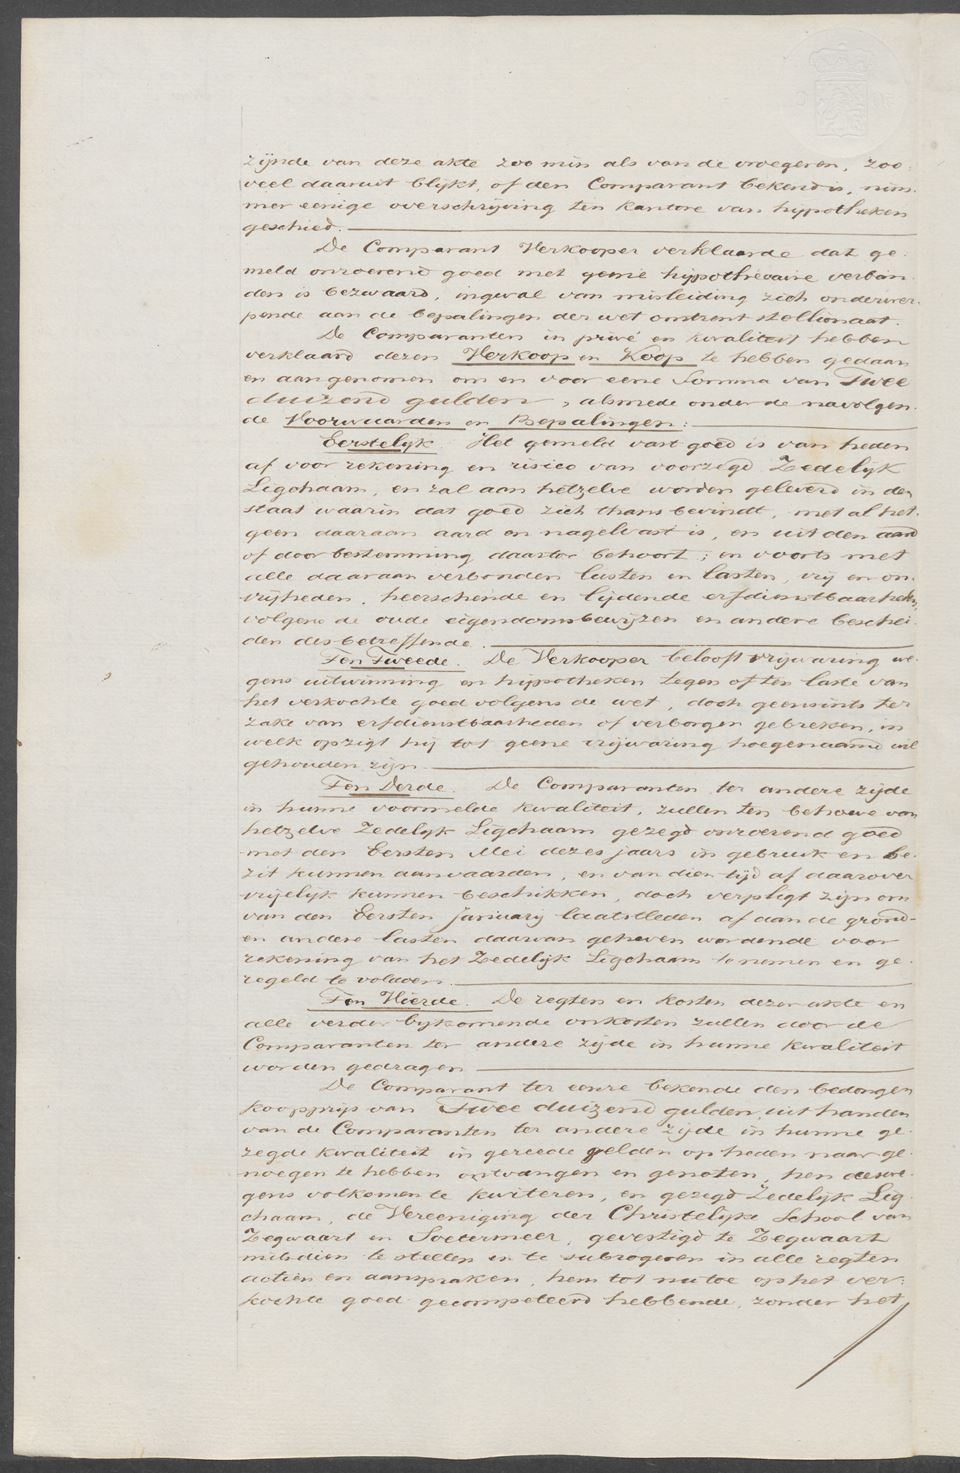 zijnde van deze akte zoo min als van de vroegeren, zoo
veel daaruit blijkt, of den Comparant bekend is, nim-
mer eenige overschrijving ten kantore van hypotheken
geschied.
De Comparant Verkooper verklaarde dat ge-
meld onroerend goed met geene hypothecaire verban-
den is bezwaard, ingeval van misleiding zich onderwer-
pende aan de bepalingen der wet omtrent stellionaat.
De Comparanten in privé en kwaliteit hebben
verklaard dezen Verkoop en Koop te hebben gedaan
en aangenomen om en voor eene Somma van Twee
duizend gulden, alsmede onder de navolgen-
de Voorwaarden en Bepalingen:
Eerstelijk. Het gemeld vast goed is van heden
af voor rekening en risico van voorzegd Zedelijk
Ligchaam, en zal aan hetzelve worden geleverd in den
staat waarin dat goed zich thans bevindt, met al het-
geen daaraan aard en nagelvast is, en uit den aard
of door bestemming daartoe behoort; en voorts met
alle daaraan verbonden lusten en lasten, vrij en on-
vrijheden, heerschende en lijdende erfdienstbaarheden,
volgens de oude eigendomsbewijzen en andere beschei-
den desbetreffende.
Ten Tweede. De Verkooper belooft vrijwaring we-
gens uitwinning en hypotheken tegen of ten laste van
het verkochte goed volgens de wet, doch geenszints ter
zake van erfdienstbaarheden of verborgen gebreken, in
welk opzigt hij tot geene vrijwaring hoegenaamd wil
gehouden zijn.
Ten Derde. De Comparanten ter andere zijde
in hunne voormelde kwaliteit, zullen ten behoeve van
hetzelve Zedelijk Ligchaam gezegd onroerend goed
met den Eersten Mei dezes jaars in gebruik en be-
zit kunnen aanvaarden, en van dien tijd af daarover
vrijelijk kunnen beschikken, doch verpligt zijn om
van den Eersten January laatstleden af aan de grond-
en andere lasten daarvan geheven wordende voor
rekening van het Zedelijk Ligchaam te nemen en ge-
regeld te voldoen.
Ten Vierde. De regten en kosten dezer akte en
alle verder bijkomende onkosten zullen door de
Comparanten ter andere zijde in hunne kwaliteit
worden gedragen
De Comparant ter eenre bekende den bedongen
koopprijs van Twee duizend gulden, uit handen
van de Comparanten ter andere zijde in hunne ge-
zegde kwaliteit in gereede gelden op heden naar ge-
noegen te hebben ontvangen en genoten, hen deswe-
gens volkomen te kwiteren, en gezegd Zedelijk Lig-
chaam, de Vereeniging der Christelijke School van
Zegwaart en Soetermeer, gevestigd te Zegwaart
mitsdien te stellen en te subrogeren in alle regten
actien en aanspraken, hem tot nu toe op het ver-
kochte goed gecompeteerd hebbende, zonder het